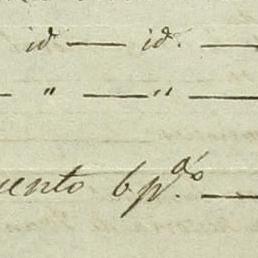 id — id. —
— " — " —
uento 6 p.